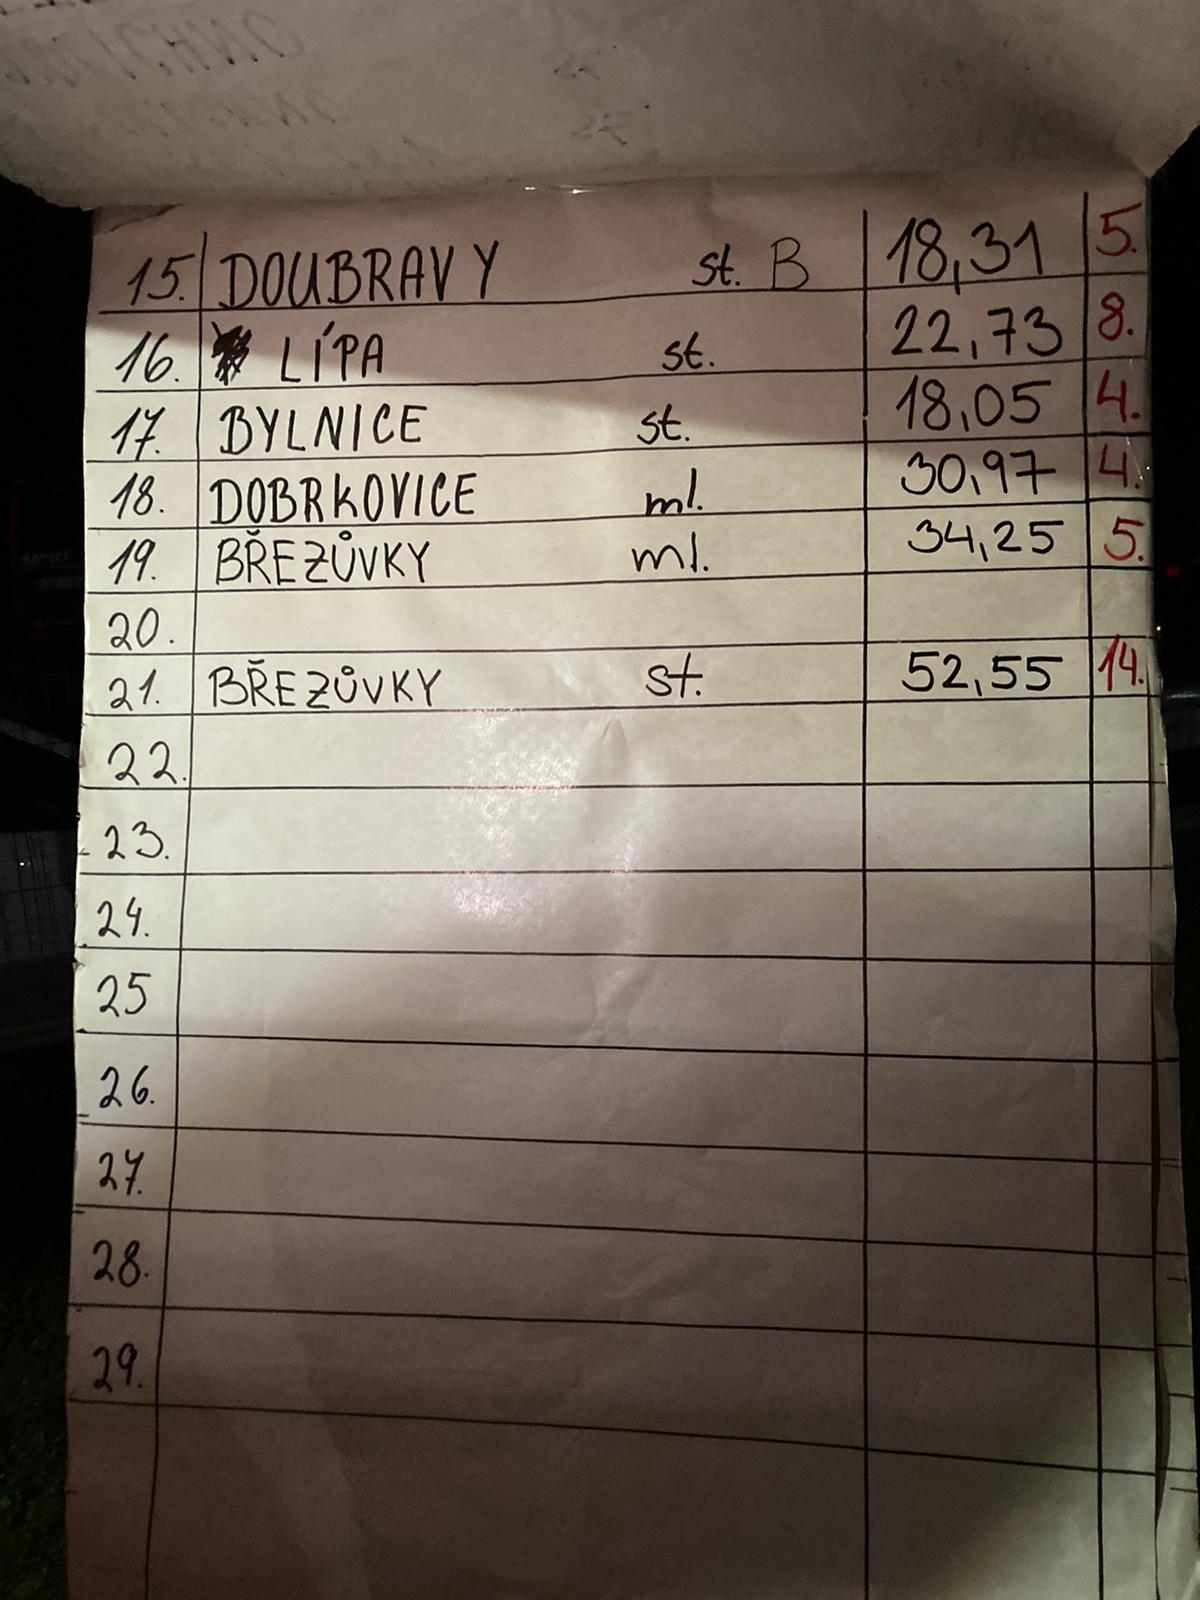 15. DOUBRAVY st. B 18,31 5.
16. LÍPA st. 22,73 8.
17. BYLNICE st. 18,05 4.
18. DOBRKOVICE ml. 30,97 4.
19. BŘEZŮVKY ml. 34,25 5.
20.
21. BŘEZŮVKY st. 52,55 14.
22.
23.
24.
25
26.
27.
28.
29.